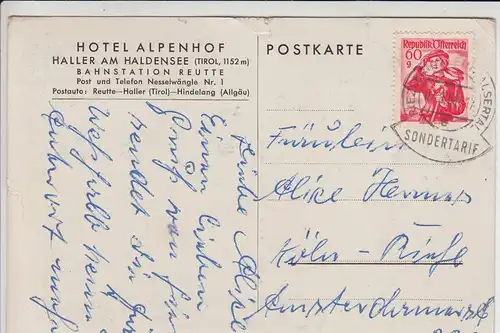 HOTEL ALPENHOF
HALLER AM HALDENSEE (TIROL, 1152 m)
BAHNSTATION REUTTE
Post und Telefon Nesselwängle Nr. 1
Postauto: Reutte—Haller (Tirol)—Hindelang (Allgäu)
POSTKARTE
Republik Österreich
60
g
ALSERTAL
SONDERTARIF
Liebe Alice
Einen lieben
Gruß von hier
sendet dir
Weshalb
Antwort
Fräulein
Alice
Köln-Riehl
Amsterdamerst